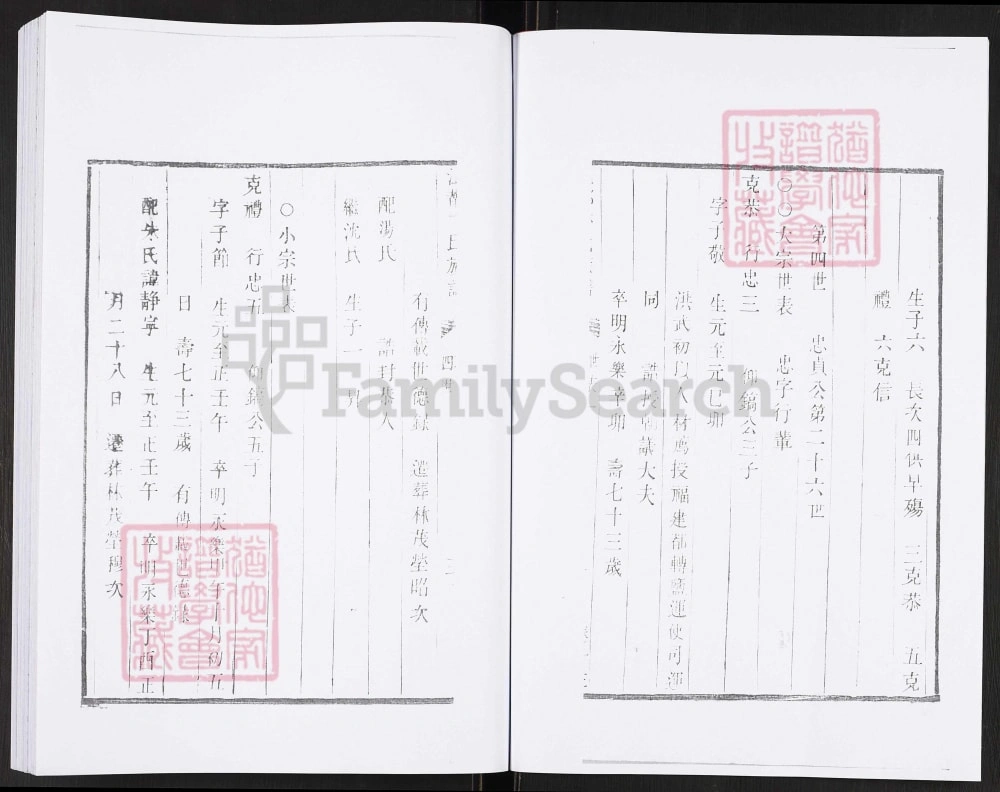 生子六 長次四俱早殤 三克恭 五克
禮 六克信
第四世 忠貞公第二十六世
○○大宗世表 忠字行輩
克恭 行忠三 仰鎬公三子
字子敬 生元至元己卯
洪武初以人材薦授福建都轉鹽運使司運
同 誥授朝議大夫
卒明永樂辛卯 壽七十三歲
四世
有傳載世德錄 遷葬林茂塋昭次
配湯氏 誥封恭人
繼沈氏 生子一
○小宗世表
克禮 行忠五 仰鎬公五子
字子節 生元至正壬午 卒明永樂甲午十月初五
日 壽七十三歲 有傳載世德錄
配朱氏諱靜寧 生元至正壬午 卒明永樂丁酉正
月二十八日 遷葬林茂塋穆次
FamilySearch